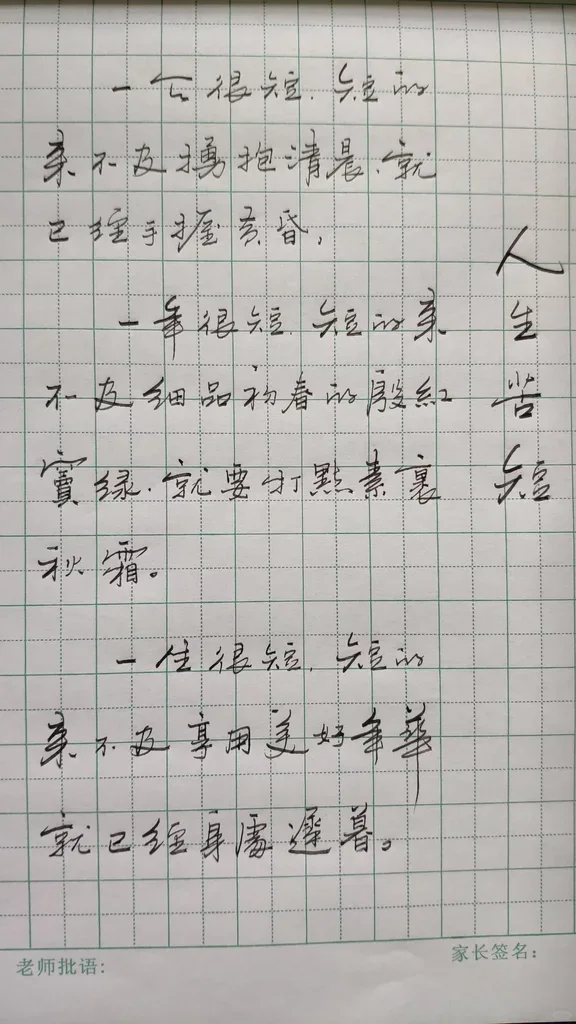 一天很短，短的
来不及擁抱清晨，就
已经手握黄昏，
一年很短，短的来
不及细品初春的殷紅
窦绿，就要打點素裹
秋霜。
一生很短，短的
来不及享用美好年華
就已经身處遲暮。
人生苦短
老师批语：
家长签名：